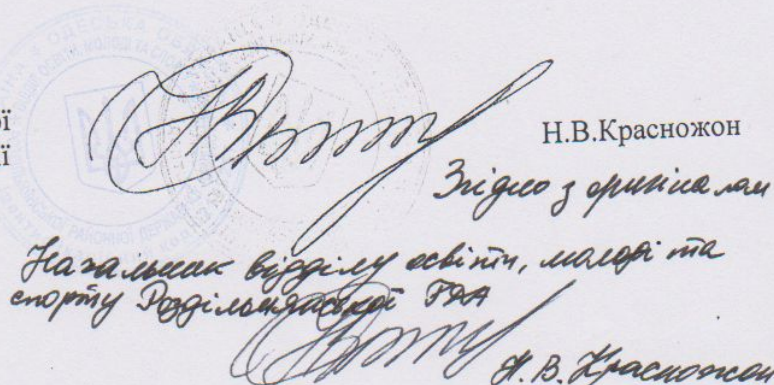 ої
ії
Н.В.Красножон
Згідно з оригіналом
Начальник відділу освіти, молоді та
спорту Роздільнянської РДА
Н.В. Красножон